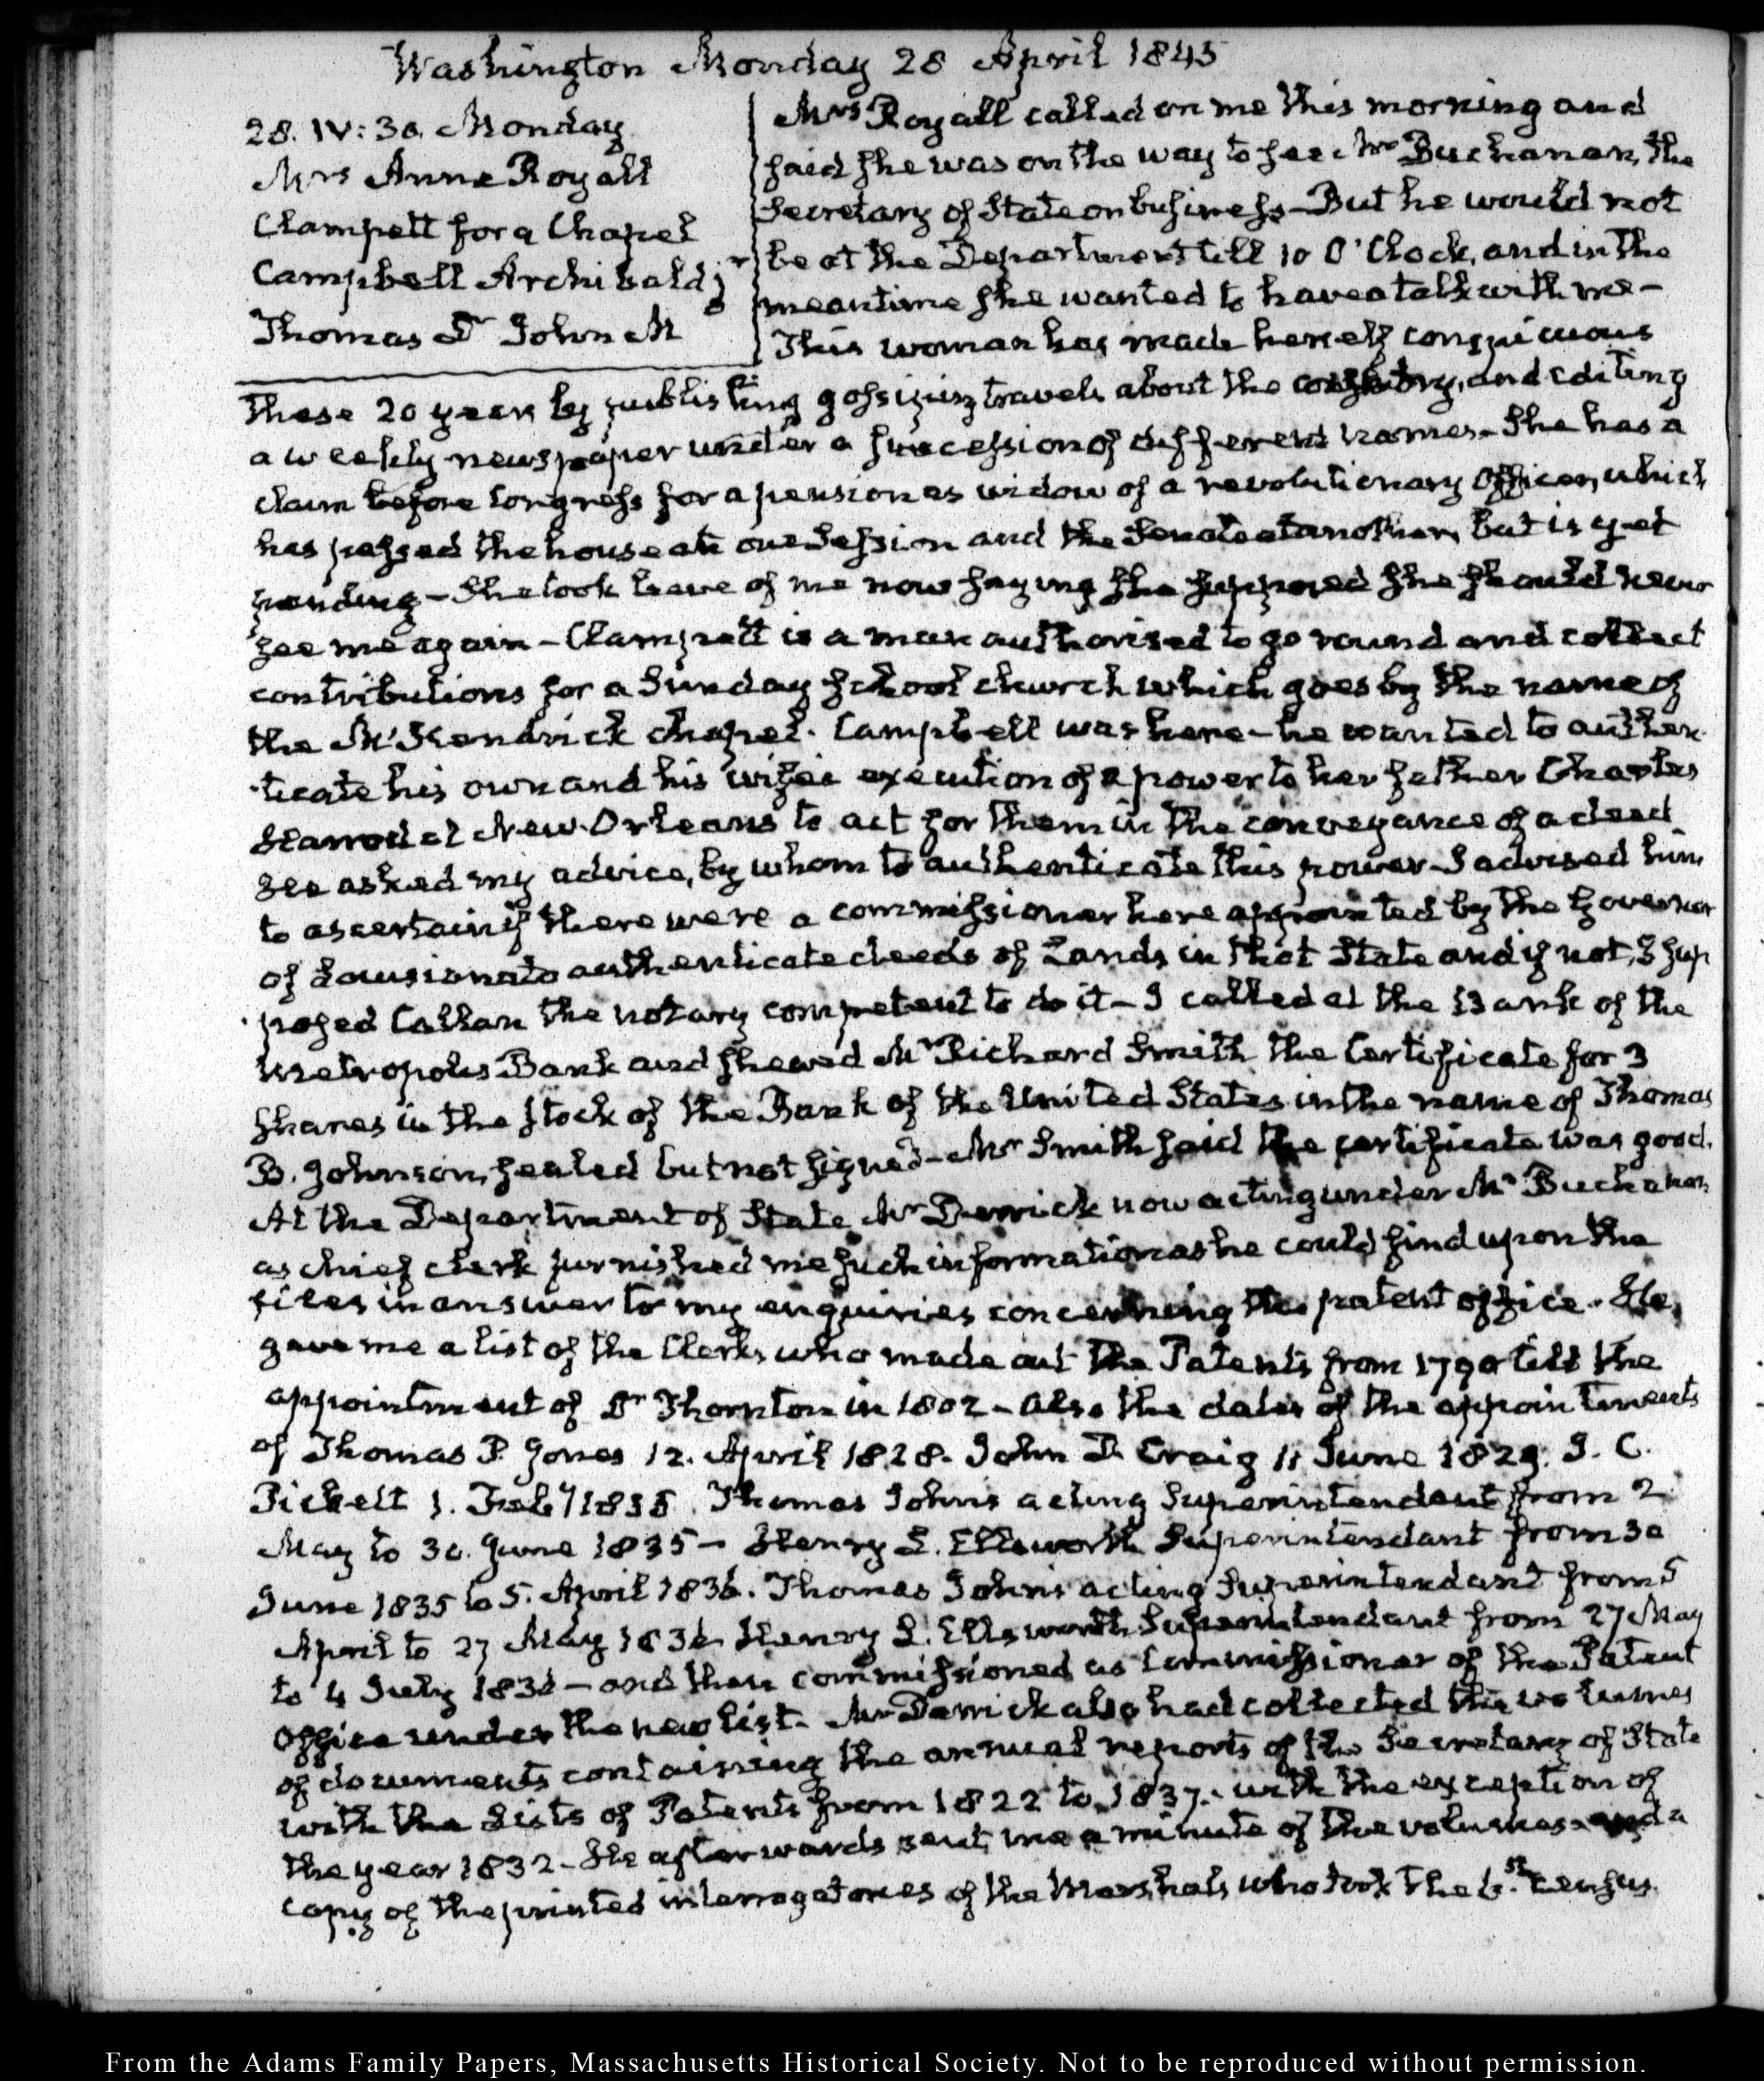 Washington Monday 28 April 1845
28. IV: 30. Monday
Mrs Anne Royall
Clampett for a Chapel
Campbell Archibald jr
Thomas Dr John M
Mrs Royall called on me this morning and
said she was on the way to see Mr Buchanan, the
Secretary of State on business — But he would not
be at the Department till 10 O'Clock, and in the
meantime she wanted to have a talk with me —
This woman has made herself conspicuous
these 20 years by publishing gossiping travels about the country, and editing
a weekly newspaper under a succession of different names. She has a
claim before Congress for a pension as widow of a revolutionary Officer, which
has passed the house at one Session and the Senate at another, but is yet
pending — She took leave of me now saying she supposed she should never
see me again — Clampett is a man authorised to go round and collect
contributions for a Sunday school church which goes by the name of
the McKendrick chapel. Campbell was here — he wanted to authen
ticate his own and his wife's execution of a power to her father Charles
at New-Orleans to act for them in the conveyance of a deed
He asked my advice, by whom to authenticate this power — I advised him
to ascertain if there were a commissioner here appointed by the Governor
of Louisiana to authenticate deeds of Lands in that State and if not, I sup
posed Callan the notary competent to do it — I called at the Bank of the
Metropolis Bank and shewed Mr Richard Smith the Certificate for 3
shares in the stock of the Bank of the United States in the name of Thomas
B. Johnson, sealed but not signed — Mr Smith said the certificate was good.
At the Department of State Mr Derrick now acting under Mr Buchanan
as chief clerk furnished me such information as he could find upon the
files in answer to my enquiries concerning the patent office. He
gave me a list of the Clerks who made out the Patents from 1790 till the
appointment of Dr Thornton in 1802 — also the dates of the appointments
of Thomas P. Jones 12. April 1828. John D. Craig 11 June 1829. J. C.
Pickett 1. Feby 1835. Thomas Johns acting Superintendent from 2
May to 30. June 1835 — Henry L. Ellsworth Superintendant from 30
June 1835 to 5. April 1836. Thomas Johns acting Superintendant from 5
April to 27 May 1836 Henry L. Ellsworth Superintendant from 27 May
to 4 July 1836 — and then commissioned as Commissioner of the Patent
Office under the new list. Mr Derrick also had collected the volumes
of documents containing the annual reports of the Secretary of State
with the Lists of Patents from 1822 to 1837. with the exception of
the year 1832 — He afterwards sent me a minute of the volumes and a
copy of the printed interrogatories of the Marshals who took the 6.st census.
From the Adams Family Papers, Massachusetts Historical Society. Not to be reproduced without permission.